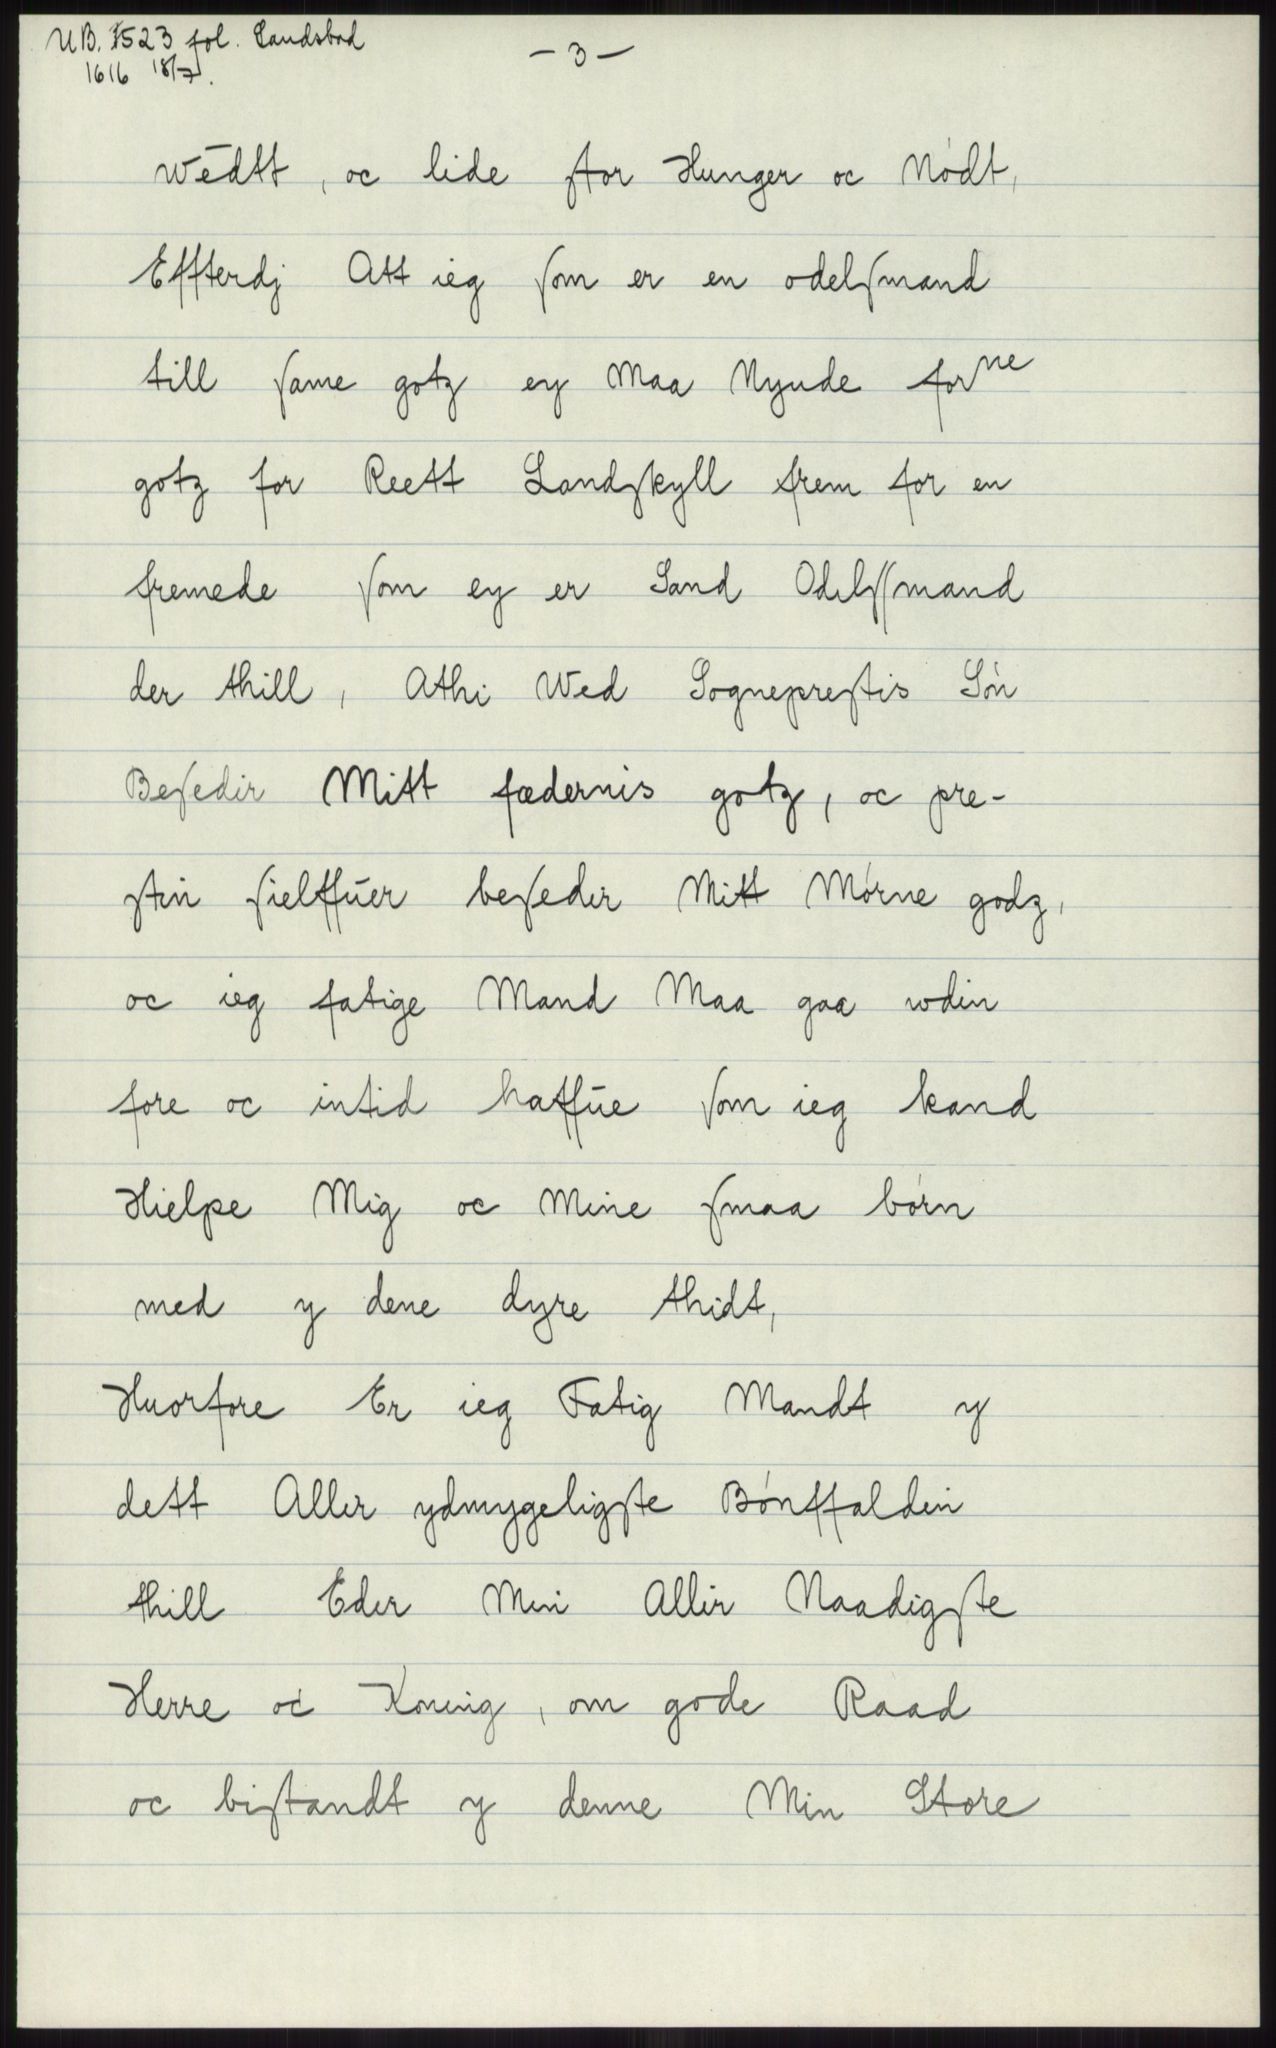 UB. 1523 fol. Landsbad
1616 18/7.
- 3 -
wēdtt, oc lide stor Hunger oc Nødt,
Effterdj Att ieg som er en odelsmand
till same gotz ey Maa Nyude forne
gotz for Reett Landskyll frem for en
fremede som ey er Sand Odelssmand
der thill, Athi Wed Sogneprestis Søn
Besedir Mitt fædernis gotz, oc pre-
stin sielffūer besedir Mitt Mørne godz,
oc ieg fatige Mand Maa gaa wdin
fore oc intid haffūe som ieg kand
Hielpe Mig oc Mine smaa børn
med y dene dyre thidt,
Huorfore Er ieg Fatig Mandt y
dett Allir ydmygeligste Bønffaldin
thill Eder Min Allir Naadigste
Herre oc Koning, om gode Raad
oc bistandt y denne Min Store